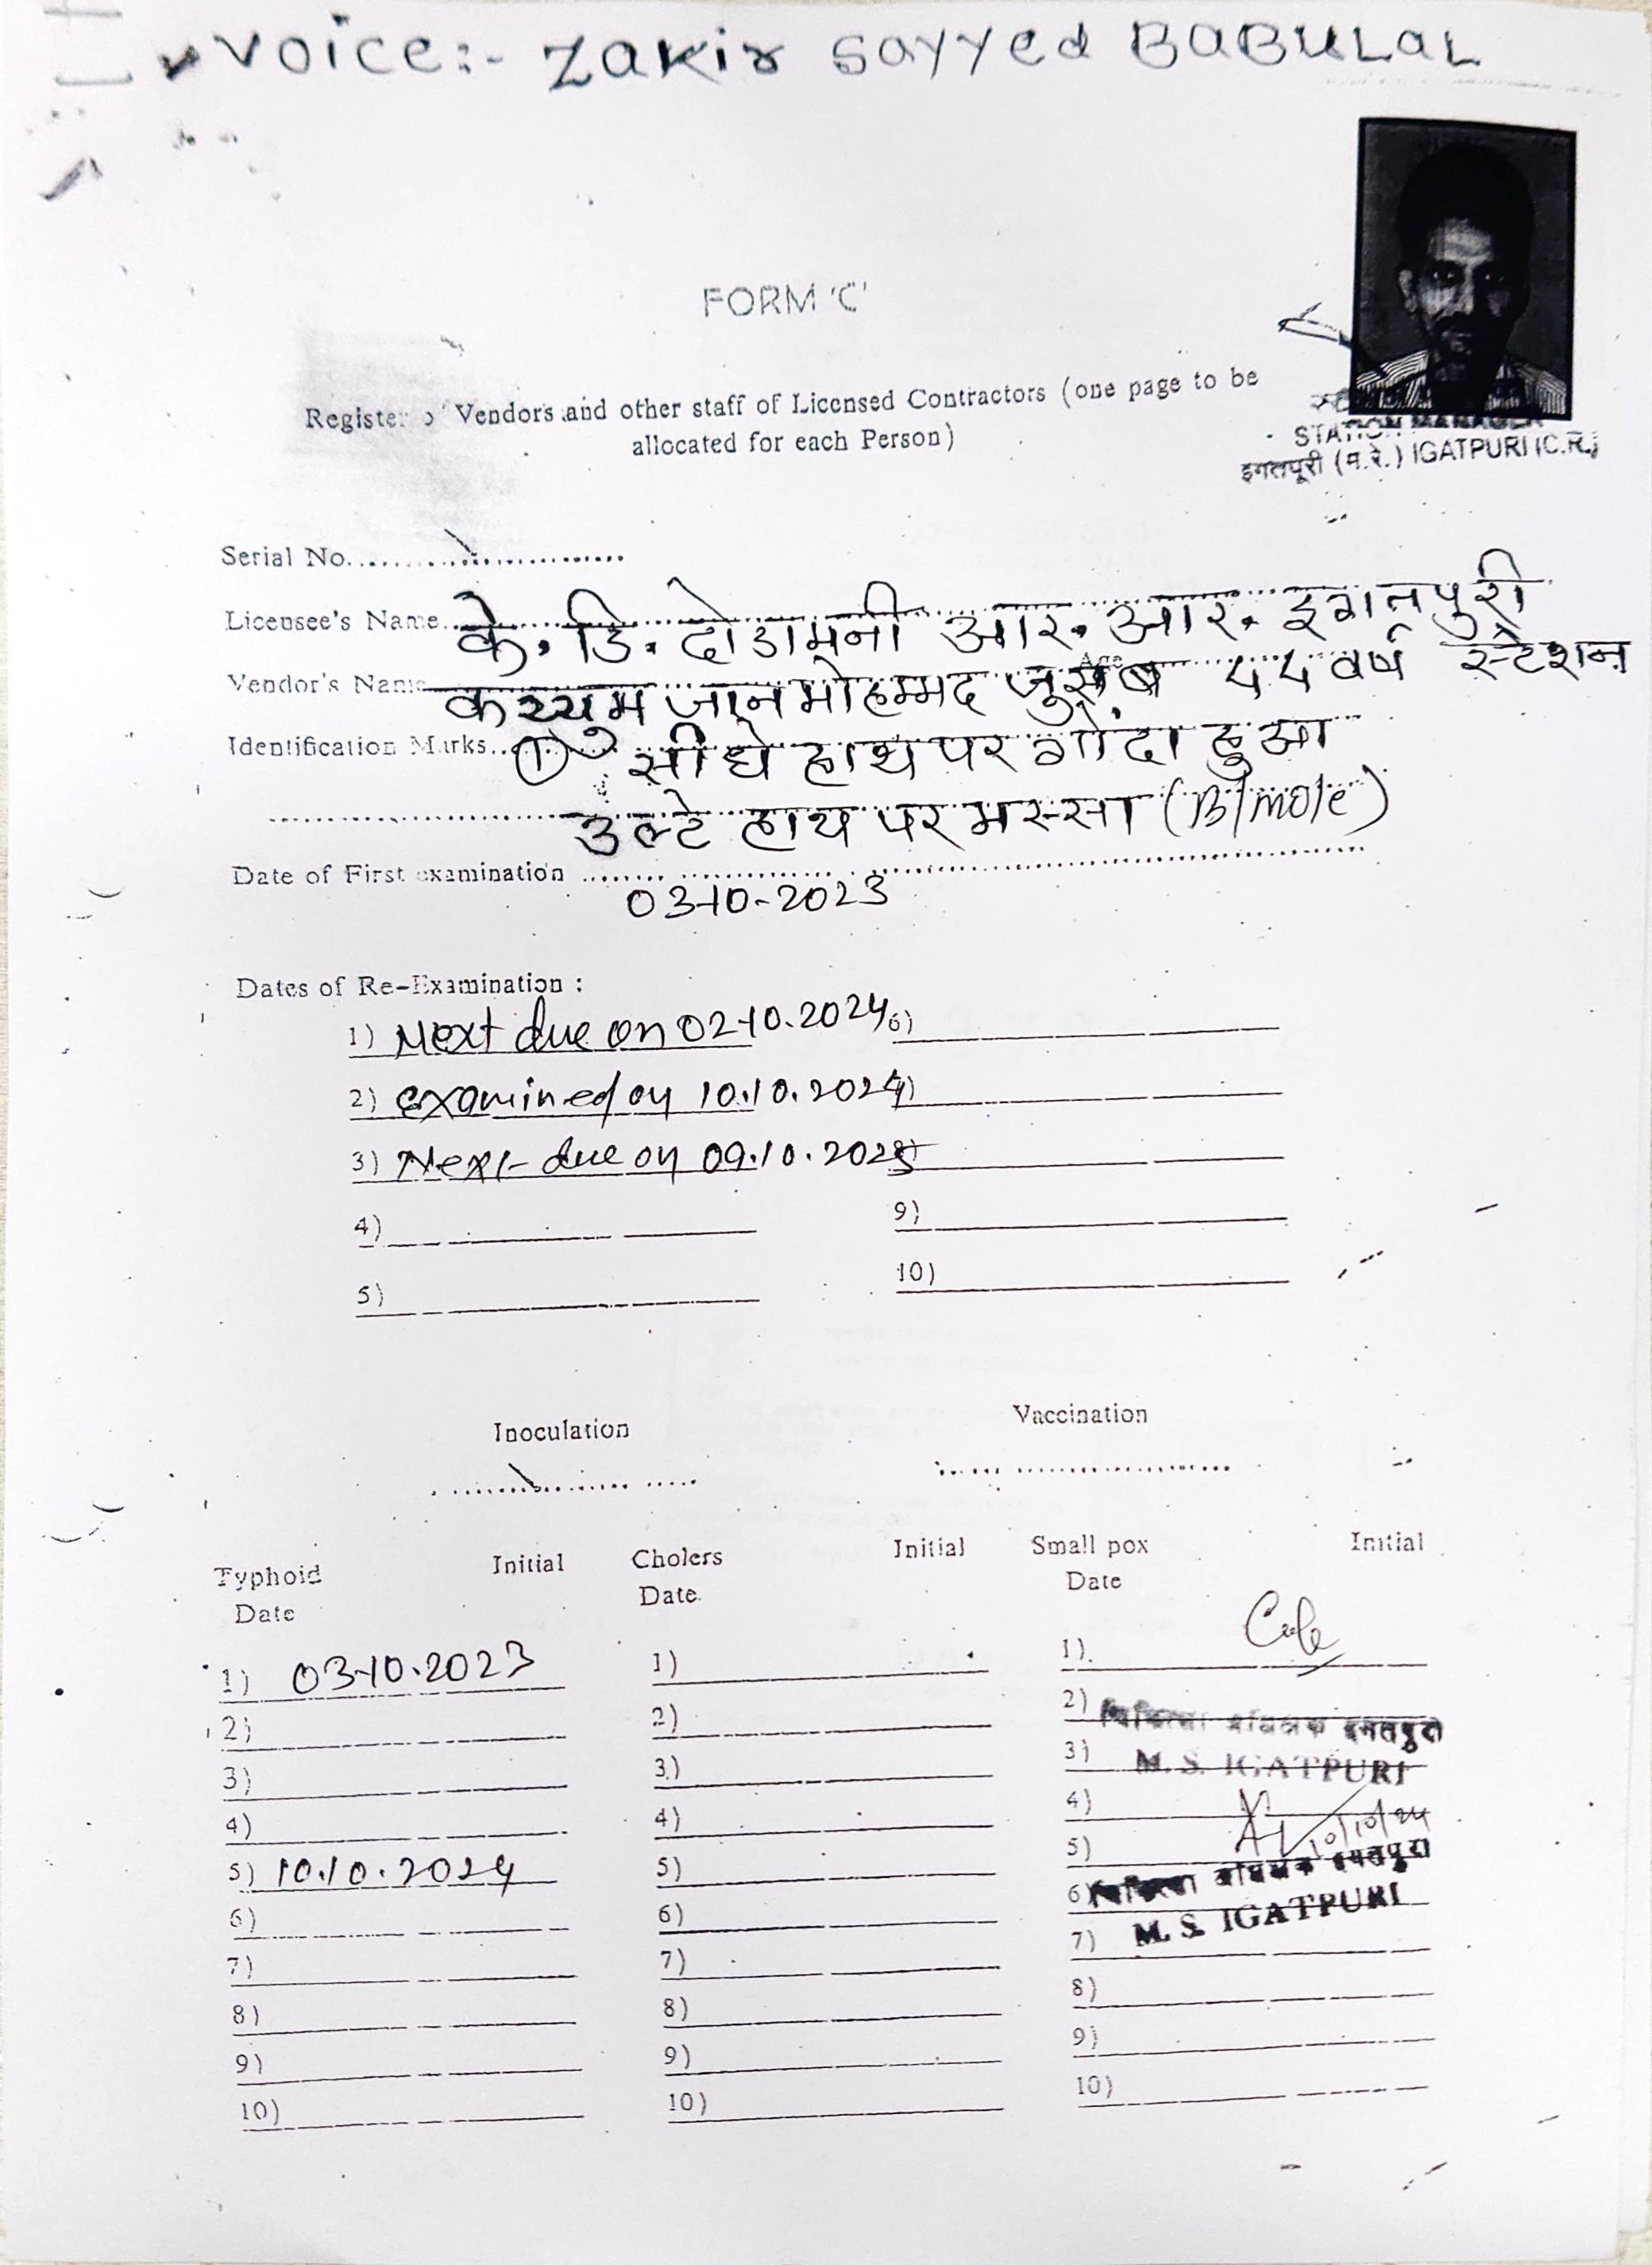 voice:- Zakir Sayyed BABULAL
FORM 'C'
Register of Vendors and other staff of Licensed Contractors (one page to be
allocated for each Person)
STATION MANAGER
इगतपूरी (म.रे.) IGATPURI (C.R.)
Serial No.
Licensee's Name के. डि. दोडामनी आर. आर. इगतपुरी
स्टेशन
Vendor's Name कय्युम जानमोहम्मद Age ५५ वर्ष
Identification Marks ① सीधे हाथ पर गोंदा हुआ
उल्टे हाथ पर मस्सा (B/mole)
Date of First examination
03-10-2023
Dates of Re-Examination :
1) Next due on 02-10.2024 6)
2) examined on 10.10.2024
3) Next due on 09.10.2025
4) 9)
5) 10)
Inoculation Vaccination
Typhoid Initial Cholers Initial Small pox Initial
Date Date Date
1) 03-10.2023 1) 1)
2) 2) 2) चिकित्सा अधिक्षक इगतपुरी
3) 3) 3) M. S. IGATPURI
4) 4) 4) 10/10/24
5) 10.10.2024 5) 5)
6) 6) 6) चिकित्सा अधिक्षक इगतपुरी
7) 7) 7) M. S. IGATPURI
8) 8) 8)
9) 9) 9)
10) 10) 10)